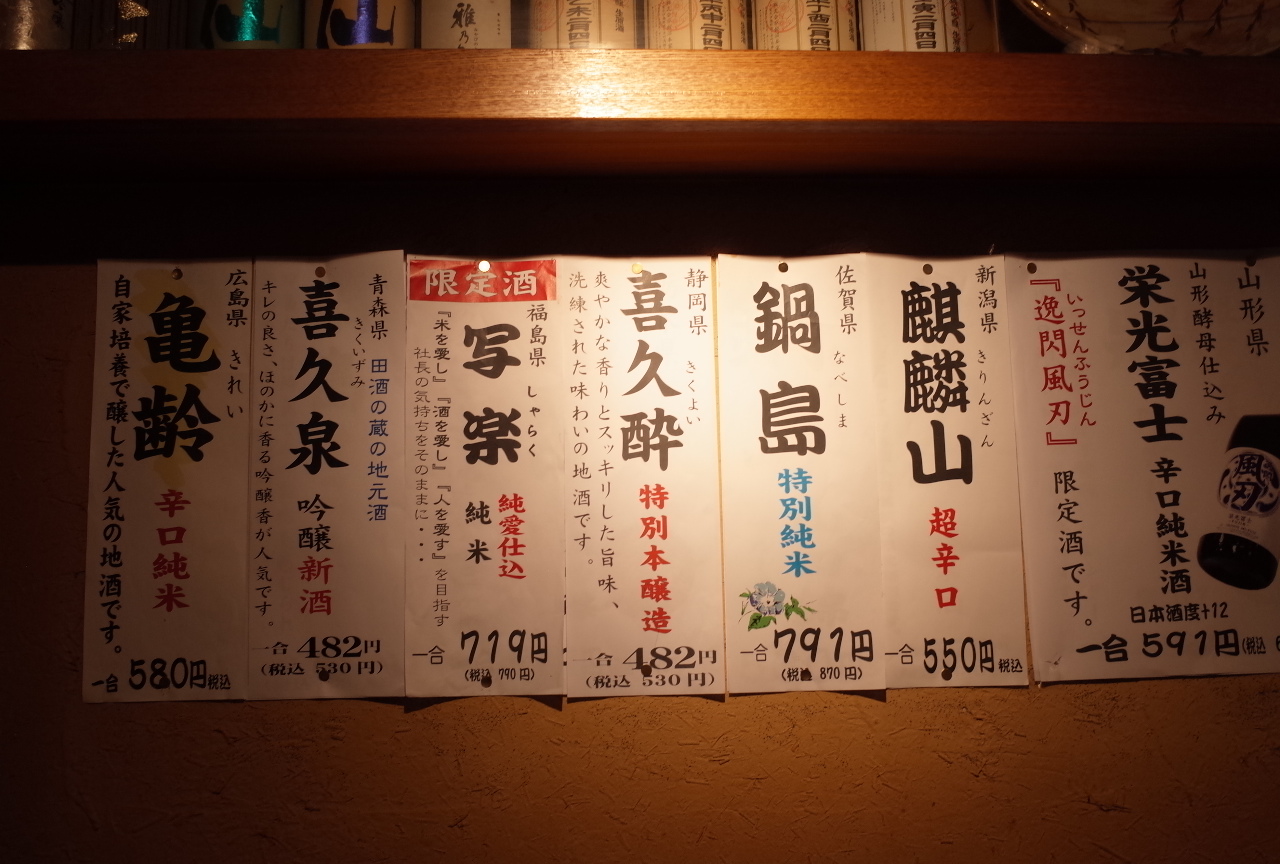 雅乃
月四日
丙申二月四日
辛酉二月四日
亥二月四日
山形県
山形酵母仕込み
栄光富士 辛口純米酒
日本酒度+12
一合 591円(税込
いっせんふうじん
『逸閃風刃』
限定酒です。
風刃
新潟県 きりんざん
麒麟山
超辛口
一合 550円税込
佐賀県 なべしま
鍋島
特別純米
一合 791円
(税込 870円)
静岡県 きくよい
喜久酔
特別本醸造
爽やかな香りとスッキリした旨味、
洗練された味わいの地酒です。
一合 482円
(税込 530円)
限定酒
福島県 しゃらく
写楽
純愛仕込
純米
『米を愛し』『酒を愛し』『人を愛す』を目指す
社長の気持ちをそのままに・・・
一合 719円
(税込 790円)
青森県 田酒の蔵の地元酒
きくいずみ
喜久泉
吟醸新酒
キレの良さ、ほのかに香る吟醸香が人気です。
一合 482円
(税込 530円)
広島県 きれい
亀齢
辛口純米
自家培養で醸した人気の地酒です。
一合 580円税込